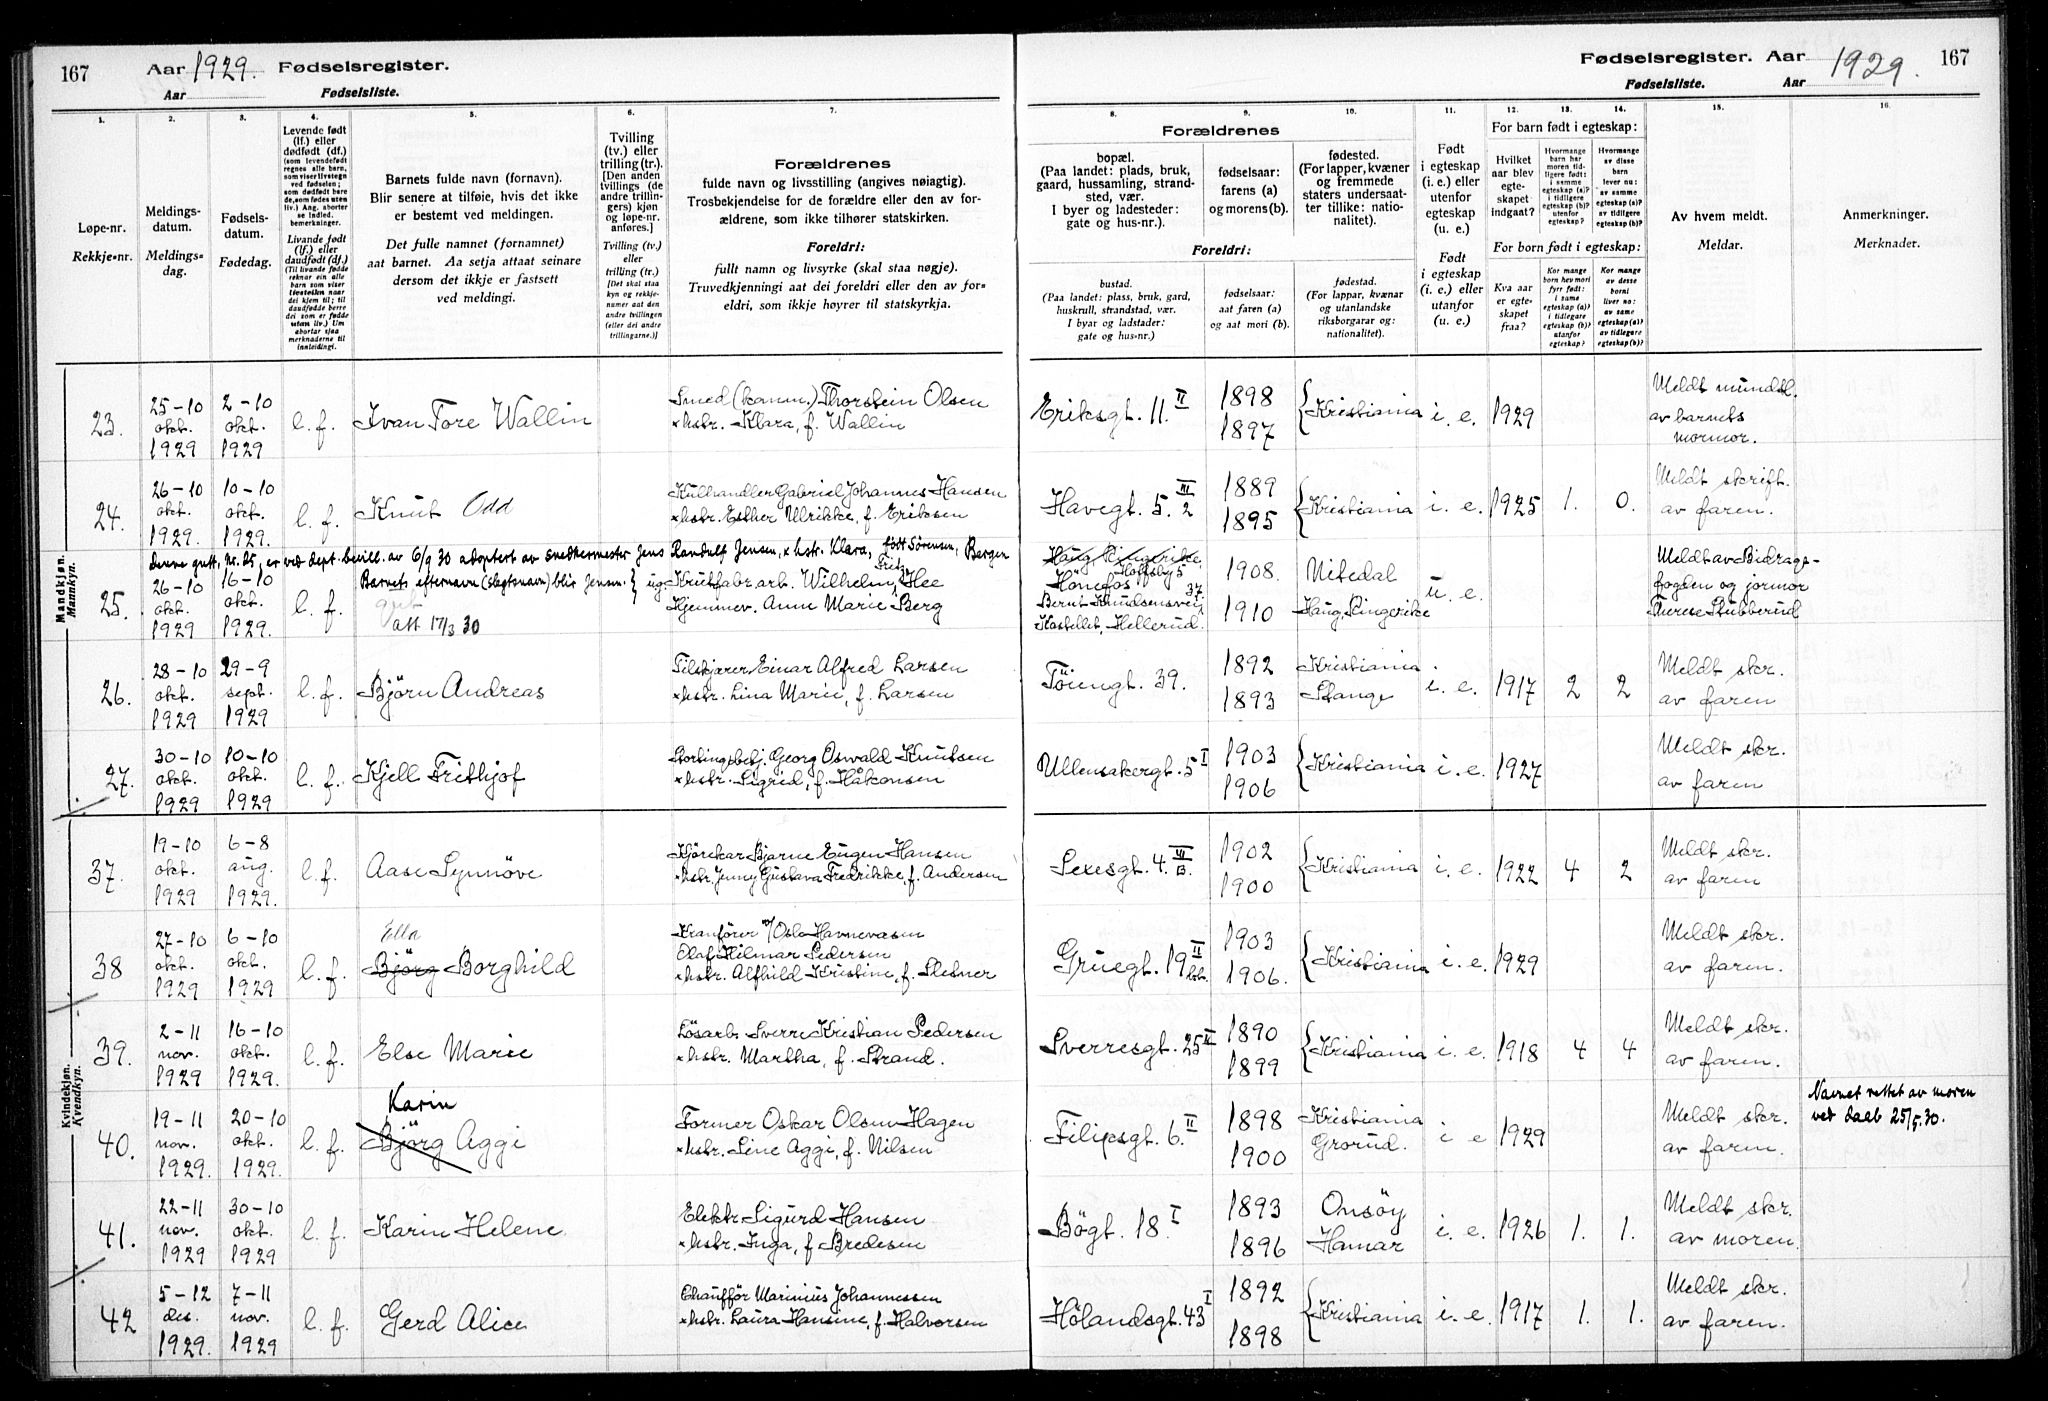 167 Aar 1929. Fødselsregister.
Aar Fødselsliste.
Fødselsregister. Aar 1929. 167
Fødselsliste. Aar
1. 2. 3. 4. 5. 6. 7.
8. 9. 10. 11. 12. 13. 14. 15. 16.
Løpe-nr.
Rekkje-nr.
Meldings-
datum.
Meldings-
dag.
Fødsels-
datum.
Fødedag.
Levende født
(lf.) eller
dødfødt (df.)
(som levendefødt
regnes alle barn,
som viser livstegn
ved fødselen;
som dødfødt bare
de, som fødes uten
liv.) Ang. aborter
se indled.
bemerkninger.
Livande født
(lf.) eller
daudfødt (df.)
(Til livande fødde
reknar ein alle
barn som viser
livsteikn naar
dei kjem til; til
daudfødde berre
dei som er fødde
utan liv.) Um
abortar sjaa
merknaderne til
innleidingi.
Barnets fulde navn (fornavn).
Blir senere at tilføie, hvis det ikke
er bestemt ved meldingen.
Det fulle namnet (fornamnet)
aat barnet. Aa setja attaat seinare
dersom det ikkje er fastsett
ved meldingi.
Tvilling
(tv.) eller
trilling (tr.).
[Den anden
tvillings (de
andre trillin-
gers) kjøn
og løpe-nr.
anføres.]
Tvilling (tv.)
eller
trilling (tr.)
[Det skal staa
kyn og rekkje-
numer aat den
andre tvillingen
(eller dei andre
trillingarne.)]
Forældrenes
fulde navn og livsstilling (angives nøiagtig).
Trosbekjendelse for de forældre eller den av for-
ældrene, som ikke tilhører statskirken.
Foreldri:
fullt namn og livsyrke (skal staa nøgje).
Truvedkjenningi aat dei foreldri eller den av for-
eldri, som ikkje høyrer til statskyrkja.
Forældrenes
bopæl.
(Paa landet: plads, bruk,
gaard, hussamling, strand-
sted, vær.
I byer og ladesteder:
gate og hus-nr.).
fødselsaar:
farens (a)
og morens (b).
fødested.
(For lapper, kvæner
og fremmede
staters undersaat-
ter tillike: natio-
nalitet).
Foreldri:
bustad.
(Paa landet: plass, bruk, gard,
huskrull, strandstad, vær.
I byar og ladstader:
gate og hus-nr.)
fødselsaar:
aat faren (a)
og aat mori (b).
fødestad.
(For lappar, kvænar
og utanlandske
riksborgarar og:
nationalitet).
Født
i egteskap
(i. e.) eller
utenfor
egteskap
(u. e.)
Født
i egteskap
(i. e.) eller
utanfor
(u. e.)
For barn født i egteskap:
Hvilket
aar blev
egte-
skapet
indgaat?
Hvormange
barn har
moren tid-
ligere født:
i samme
egteskap (a)?
i tidligere
egteskap (b)?
utenfor
egteskap?
Hvormange
av disse
barn
lever nu:
av samme
egteskap (a)?
av tidligere
egteskap (b)?
For born født i egteskap:
Kva aar
er egte-
skapet
fraa?
Kor mange
barn hev mori
fyrr født:
i same
egteskap (a)?
i tidlegare
egteskap (b)?
utanfor
egteskap?
Kor mange
av desse
borni
liver no:
av same
egteskap (a)?
av tidlegare
egteskap (b)?
Av hvem meldt.
Meldar.
Anmerkninger.
Merknader.
Mandkjøn.
Mannkyn.
23. 25-10 okt. 1929 2-10 okt. 1929 l. f. Ivan Tore Wallin Smed (komm.) Thorstein Olsen
* hstr. Klara, f. Wallin
Eriksgt. 11. II 1898 1897 {Kristiania i. e. 1929 Meldt mundtl.
av barnets
mormor.
24. 26-10 okt. 1929. 10-10 okt. 1929. l. f. Knut Odd Kulhandler Gabriel Johannes Hansen
* hstr. Esther Ulrikke, f. Eriksen
Havegt. 5. III 2 1889 1895 {Kristiania i. e. 1925 1. 0. Meldt skrift.
av faren.
Denne gutt, nr. 25, er ved dept. bevill. av 6/9 30 adoptert av snedkermester Jens Randulf Jensen, * hstr. Klara, født Sørensen, Bergen
Barnets efternavn (slegtsnavn) blir Jensen. }
25. 26-10 okt. 1929 16-10 okt. 1929. l. f. gut
att 17/3 30
ug. Krutfabr. arb. Wilhelm Fritz Hee
Hjemmev. Anne Marie Berg
Haug, Ringerike
Hönefos Hoffsby 5
Bernt Knudsensvei 37
Kastellet, Hellerud.
1908. 1910 Nitedal
Haug, Ringerike u. e. Meldt av Bidrags-
fogden og jormor
Therese Stubberud
26. 28-10 okt. 1929 29-9 sept. 1929 l. f. Björn Andreas Tilskjærer Einar Alfred Larsen
* hstr. Lina Marie, f. Larsen
Töiengt. 39. 1892 1893 Kristiania
Stange i. e. 1917 2 2 Meldt skr.
av faren
27. 30-10 okt. 1929 10-10 okt. 1929 l. f. Kjell Frithjof Stortingsbetj. Georg Oswald Knutsen
* hstr. Sigrid, f. Håkonsen
Ullensakergt. 5 I 1903 1906 {Kristiania i. e. 1927 Meldt skr.
av faren
Kvindekjøn.
Kvendkyn.
37. 19-10 okt. 1929 6-8 aug. 1929. l. f. Aase Synnöve Kjörekar Bjarne Eugen Hansen
* hstr. Jenny Gustava Fredrikke, f. Andersen
Sexesgt. 4. VI B. 1902 1900 {Kristiania i. e. 1922 4 2 Meldt skr.
av faren
38 27-10 okt. 1929 6-10 okt. 1929 l. f. Ella
Björg Borghild Kranförer v/ Oslo Havnevæsen
Olaf Hilmar Pedersen
* hstr. Alfhild Kristine, f. Slesner
Gruegt. 19 II 1903 1906. {Kristiania i. e. 1929 Meldt skr.
av faren.
39. 2-11 nov. 1929 16-10 okt. 1929. l. f. Else Marie Lösarb. Sverre Kristian Pedersen
* hstr. Martha, f. Strand.
Sverresgt. 25 II 1890 1899 {Kristiania i. e. 1918 4 4 Meldt skr.
av faren.
40. 19-11 nov. 1929. 20-10 okt. 1929. l. f. Karin
Björg Aggi Former Oskar Olsen Hagen
* hstr. Line Aggi, f. Nilsen
Filipsgt. 6. II 1898 1900 Kristiania
Grorud. i e 1929 Meldt skr.
av faren. Navnet rettet av moren
ved daab 25/5.30.
41. 22-11 nov. 1929 30-10 okt. 1929 l. f. Karin Helene Elektr. Sigurd Hansen
* hstr. Inga, f Bredesen
Bögt. 18. I 1893 1896 Onsöy
Hamar i. e. 1926 1. 1. Meldt skr.
av moren.
42 5-12 des. 1929. 7-11 nov. 1929 l. f. Gerd Alice Chaufför Marinius Johannessen
* hstr. Laura Hansine, f. Halvorsen
Hölandsgt. 43 I 1892 1898 {Kristiania i. e. 1917 1. 1. Meldt skr.
av faren.